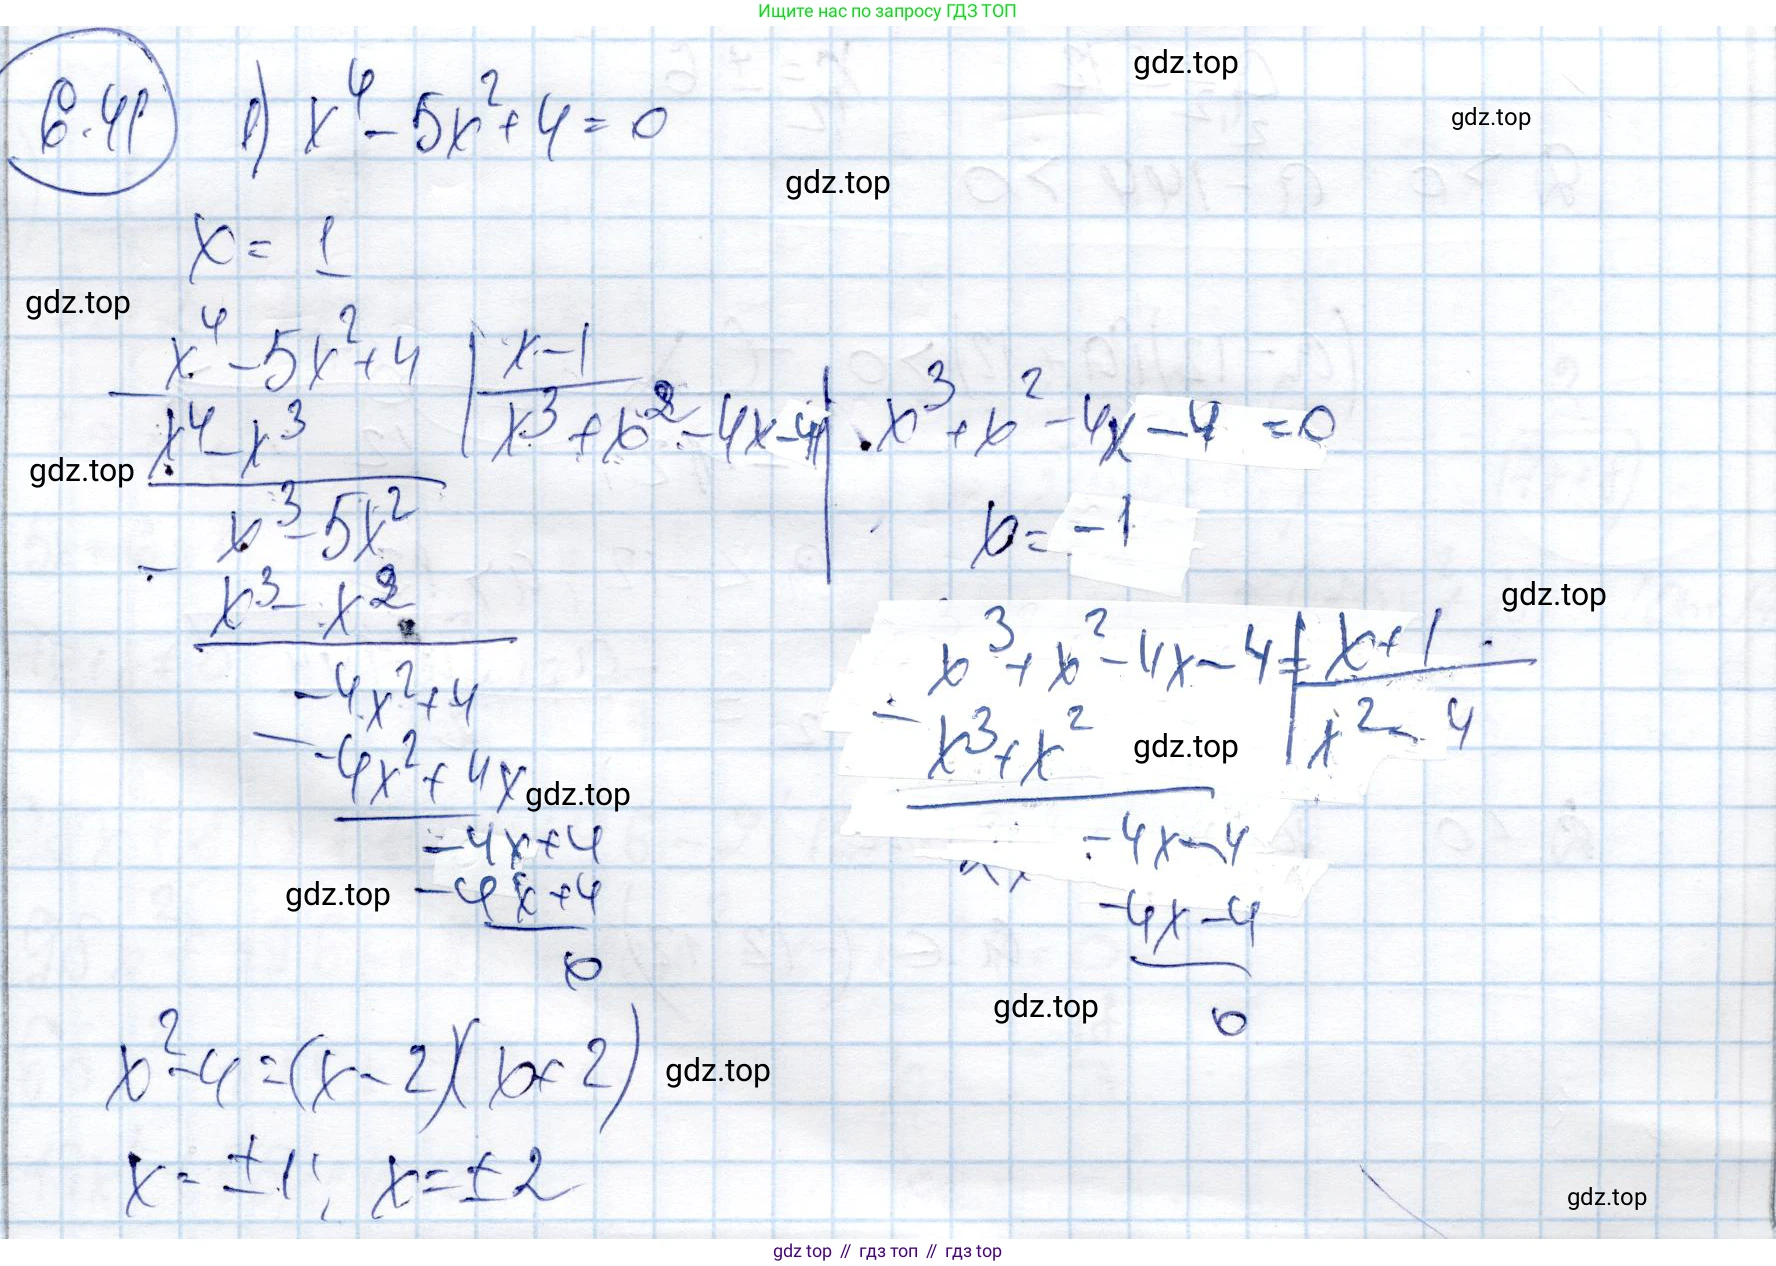 Ищите нас по запросу ГДЗ ТОП
6.41 1) x⁴ - 5x² + 4 = 0
gdz.top
gdz.top
gdz.top
x = 1
gdz.top
x⁴ - 5x² + 4 | x - 1
x⁴ - x³ | x³ + x² - 4x - 4
gdz.top
x³ - 5x²
x³ - x²
-4x² + 4
-4x² + 4x
gdz.top
-4x + 4
-4x + 4
gdz.top
0
x³ + x² - 4x - 4 = 0
x = -1
gdz.top
x³ + x² - 4x - 4 = | x + 1
x³ + x² | x² - 4
gdz.top
-4x - 4
-4x - 4
gdz.top
0
x² - 4 = (x - 2)(x + 2)
gdz.top
x = ±1; x = ±2
gdz.top
gdz top // гдз топ // гдз top